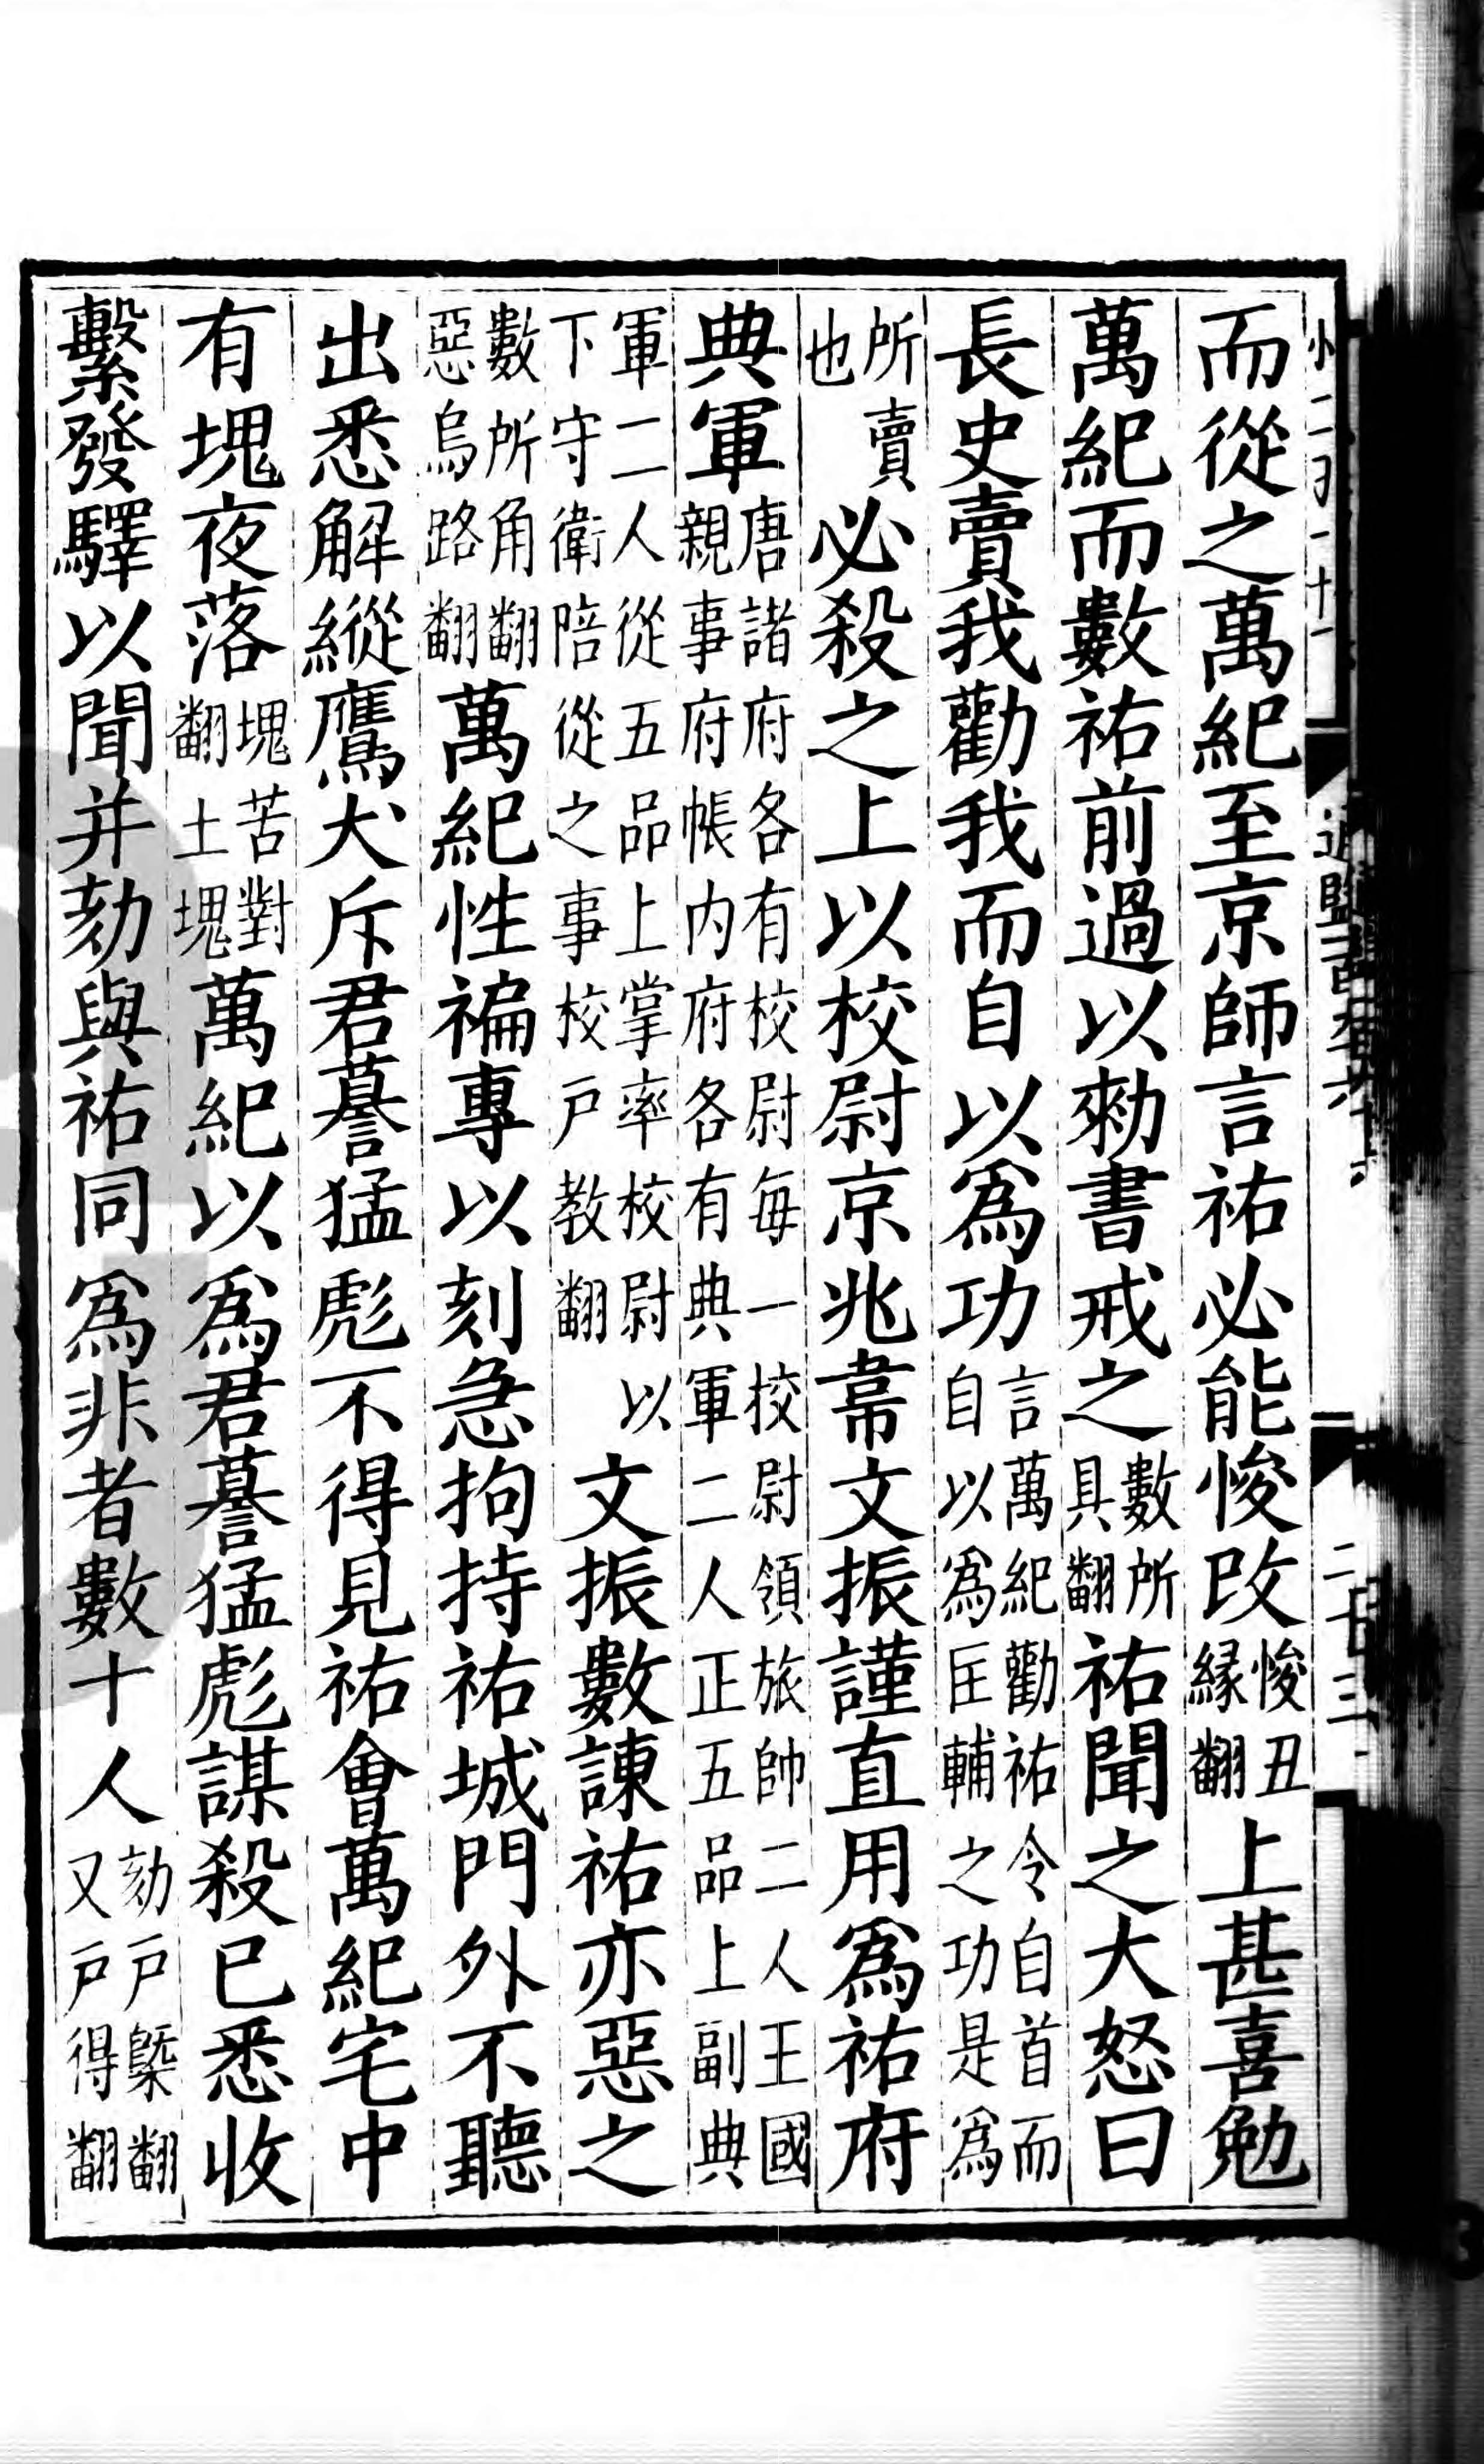 而從之萬紀至京師言祐必能悛改悛丑緣翻上甚喜勉
萬紀而數祐前過以勑書戒之數所具翻祐聞之大怒曰
長史賣我勸我而自以爲功言萬紀勸祐令自首而自以爲匡輔之功是爲
所賣也必殺之上以校尉京兆韋文振謹直用爲祐府
典軍唐諸府各有校尉每一校尉領旅帥二人王國親事府帳内府各有典軍二人正五品上副典
軍二人從五品上掌率校尉以下守衛陪從之事校戶教翻文振數諫祐亦惡之
數所角翻惡烏路翻萬紀性褊專以刻急拘持祐城門外不聽
出悉解縱鷹犬斥君謩猛彪不得見祐會萬紀宅中
有塊夜落塊苦對翻土塊萬紀以爲君謩猛彪謀殺已悉收
繫發驛以聞并劾與祐同爲非者數十人劾戶槩翻又戶得翻